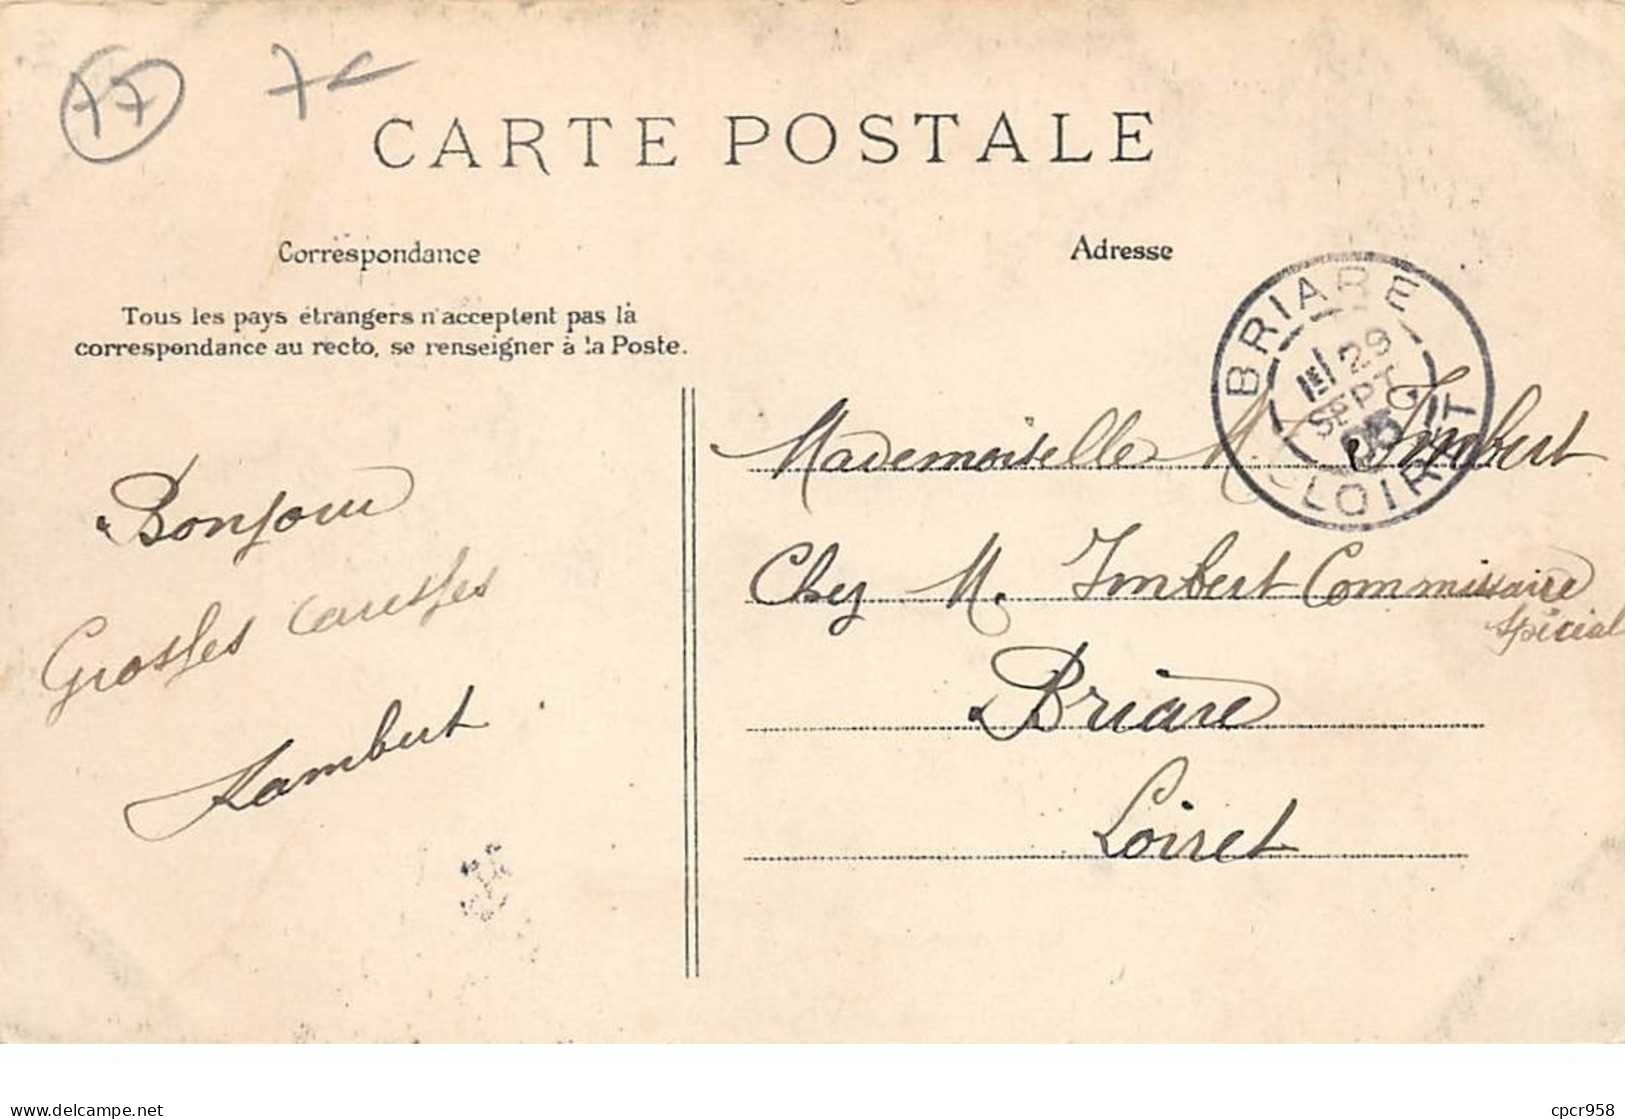 77 7
CARTE POSTALE
Correspondance
Tous les pays étrangers n'acceptent pas la
correspondance au recto, se renseigner à la Poste.
Bonjour
Grosses caresses
Lambert
Adresse
BRIARE
29
SEPT
05
LOIRET
Mademoiselle M. Imbert
Chez M. Imbert Commissaire
spécial
Briare
Loiret
delcampe.net
cpcr958